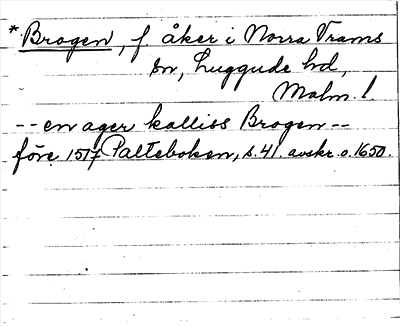 *Brogen, f. åker i Norra Vrams
sn, Luggude hd,
Malm. l.
-- en ager kalliss Brogen --
före 1517 Palteboken, s. 41. avskr. o. 1650.